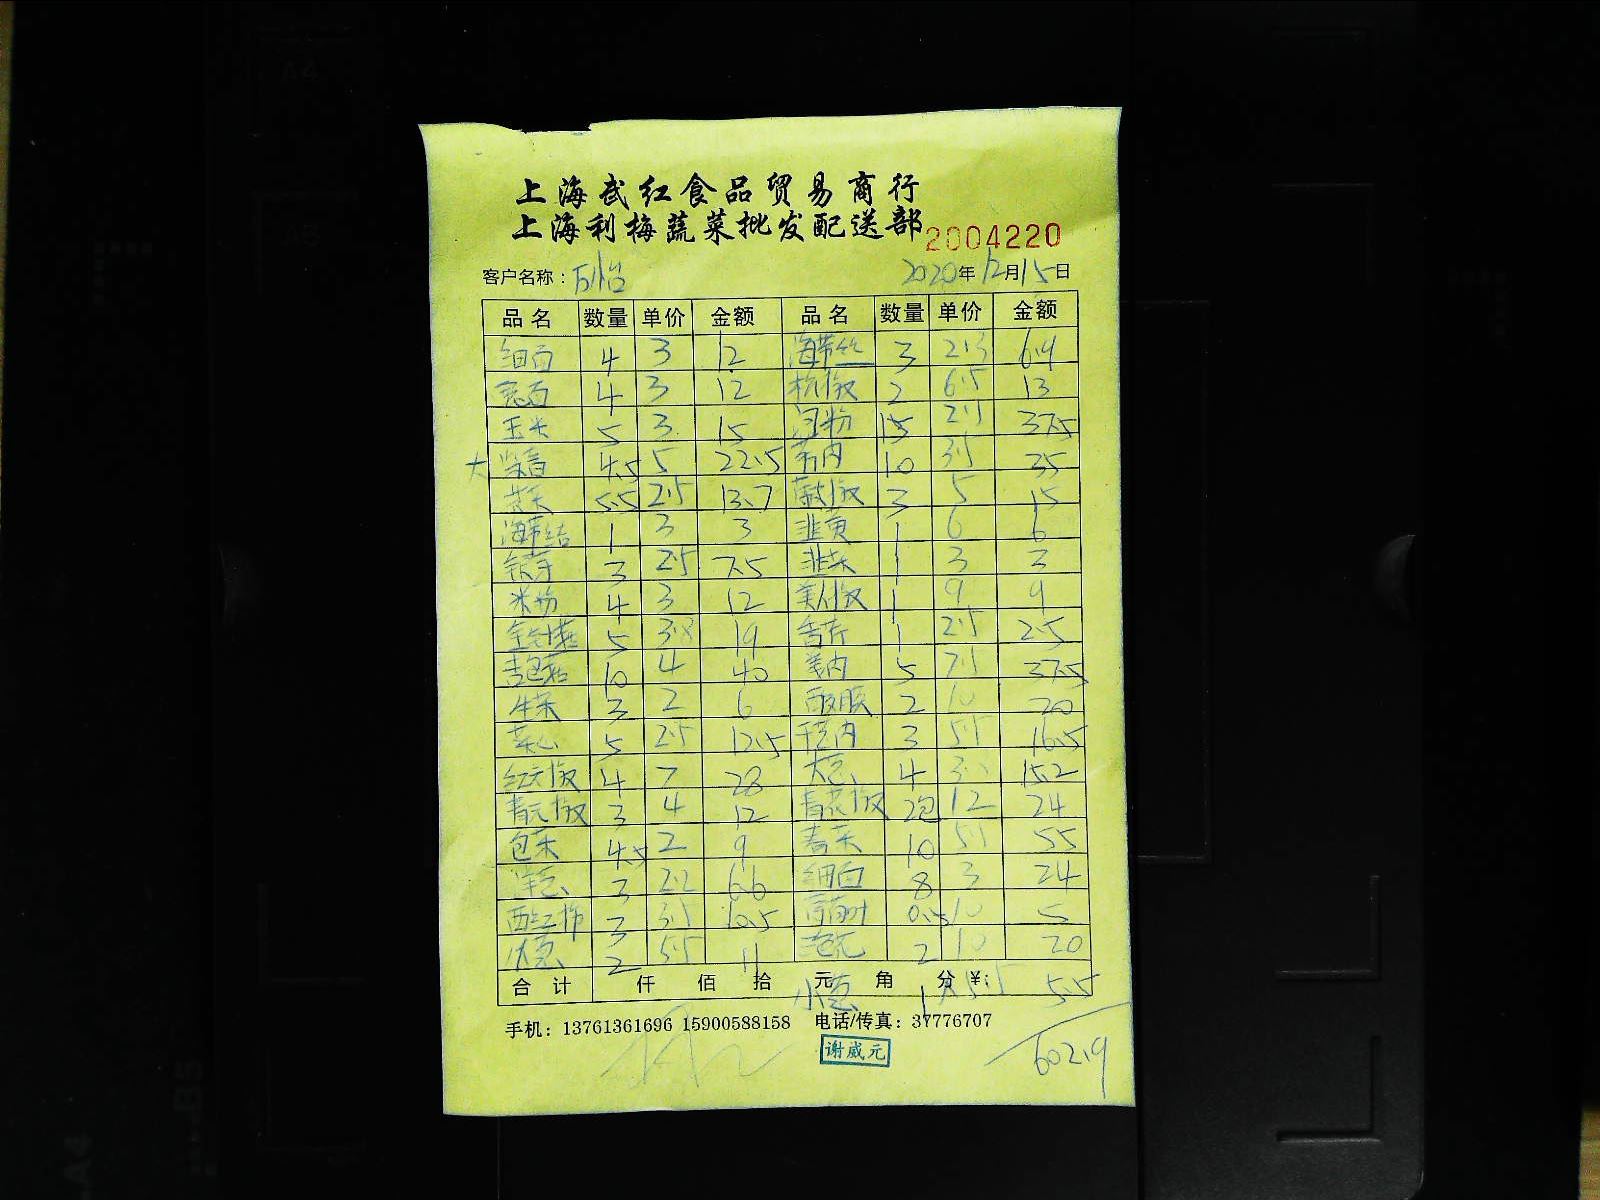 上海武红食品贸易商行
上海利梅蔬菜批发配送部 2004220
客户名称： 2020年12月15日
品名 数量 单价 金额 品名 数量 单价 金额
细面 4 3 12 海带丝 3 2.3 6.9
宽面 4 3 12 杭椒 2 6.5 13
玉米 5 3 15 河粉 15 2.5 37.5
大 4.5 5 22.5 10 3.5 35
5.5 2.5 13.7 3 5 15
海带结 1 3 3 韭黄 1 6 6
银芽 3 2.5 7.5 韭菜 1 3 3
米粉 4 3 12 美人椒 1 9 9
金针菇 5 3.8 19 香芹 1 2.5 2.5
杏包菇 10 4 40 5 7.5 37.5
生菜 3 2 6 2 10 20
菜心 5 2.5 12.5 3 5.5 16.5
红尖椒 4 7 28 大葱 4 15.2
青尖椒 3 4 12 青花椒 2包 12 24
包菜 4.5 2 9 10 5.5 55
洋葱 3 2.2 6.6 细面 8 3 24
西红柿 3 3.5 10.5 0.5 10 5
2 5.5 11 2 10 20
合计 仟 佰 拾 元 角 分 ¥:
小葱 1 5.5 5.5
手机：13761361696 15900588158 电话/传真：37776707
谢威元
602.9